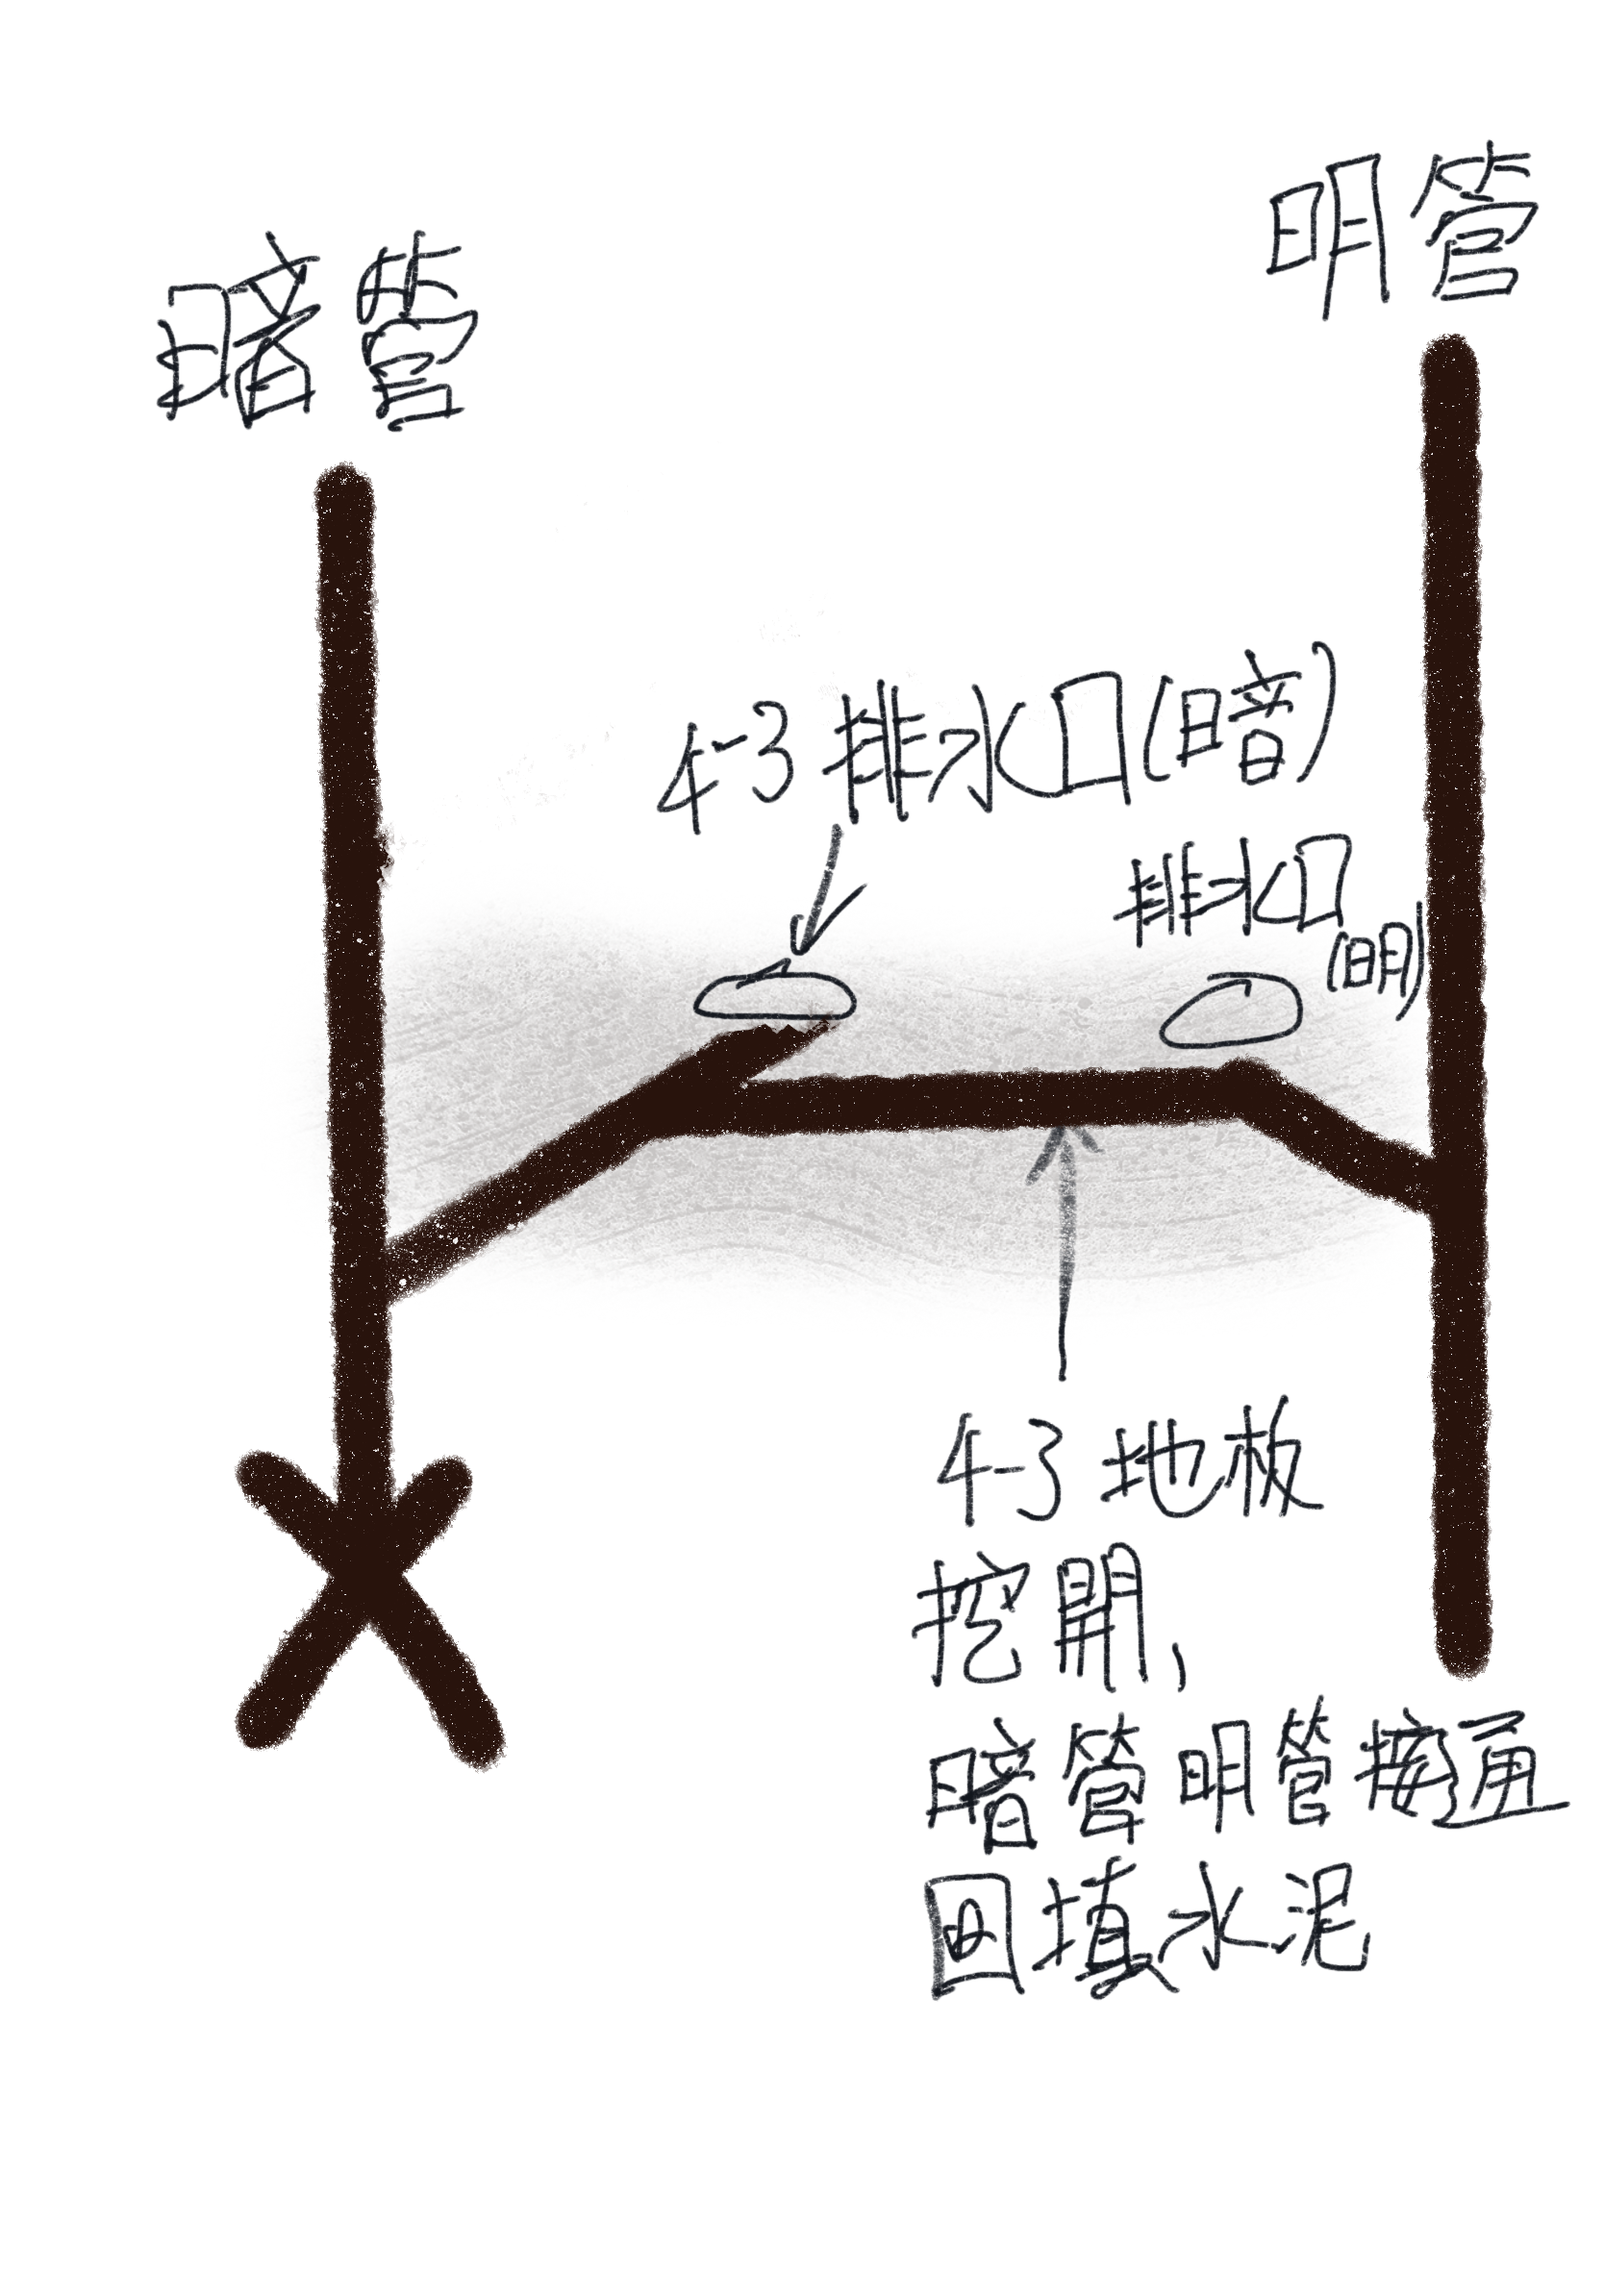 明管
暗管
4-3 排水口(暗)
排水口
(明)
4-3 地板
挖開,
暗管明管接通
回填水泥